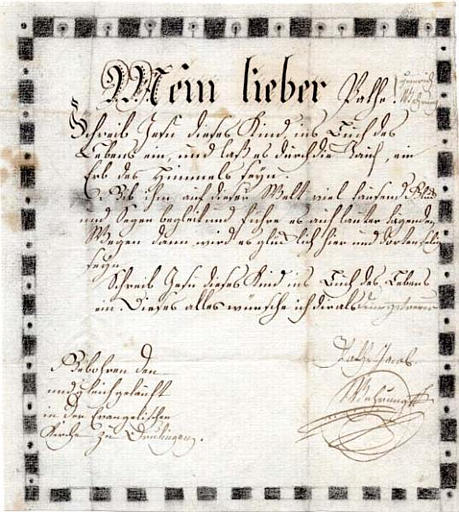 Mein lieber Pathe
Schreib Jesu dieses Kind, ins Buch des
Lebens ein, und laß es durch die Tauf, ein
Erb des Himmels seyn.
Gib ihm auf dieser Welt viel tausend Glück
und Segen begleit und führe es auf lauter
Wegen dann wird es glücklich hier und dorten
seyn
Schreib Jesu dieses Kind ins Buch des Lebens
ein Dieses alles wünsche ich dir als
Pathe Jacob
Gebohren den
und gleich getauft
in der Evangelischen
Kirche zu